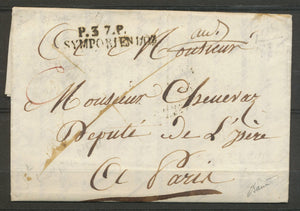 P.37.P.
SYMPORIEN D'OZ
Monsieur
Monsieur Chenevaz
Député de L'isère
A Paris